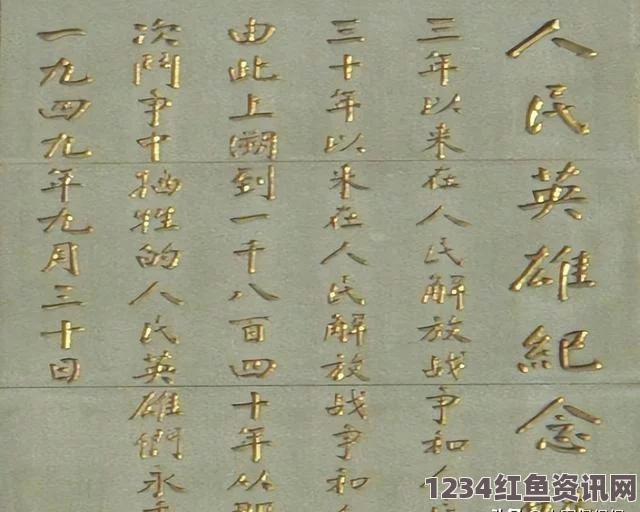 人民英雄紀念
三年以来在人民解放战争和人
三十年以来在人民解放战争和人
由此上溯到一千八百四十年从那
次鬥争中牺牲的人民英雄們永
一九四九年九月三十日
1234红鱼资讯网